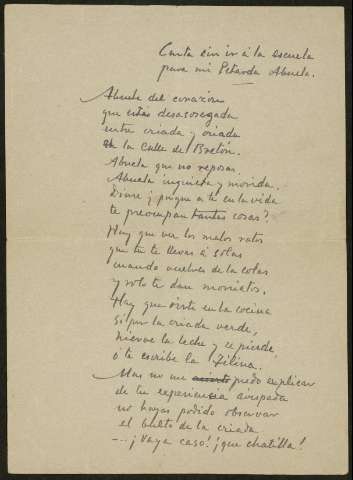 Carta sin ir á la escuela
para mi Petarda Abuela.
Abuela del corazón
que estás desasosegada
entre criada y criada
en la Calle de Bretón.
Abuela que no reposa.
Abuela inquieta y movida.
Dime ¿porque a ti en la vida
te preocupan tantas cosas?
Hay que ver los malos ratos
que tu te llevas á solas
cuando vuelves de la colas
y solo te dan moniatos.
Hay que oirte en la cocina
si por la criada verde,
hierve la leche y se pierde,
ó te escribe la
Mas no me puedo explicar
de tu experiencia
no hayas podido observar
el bulto de la criada
--- ¡Vaya caso! ¡que chatilla!